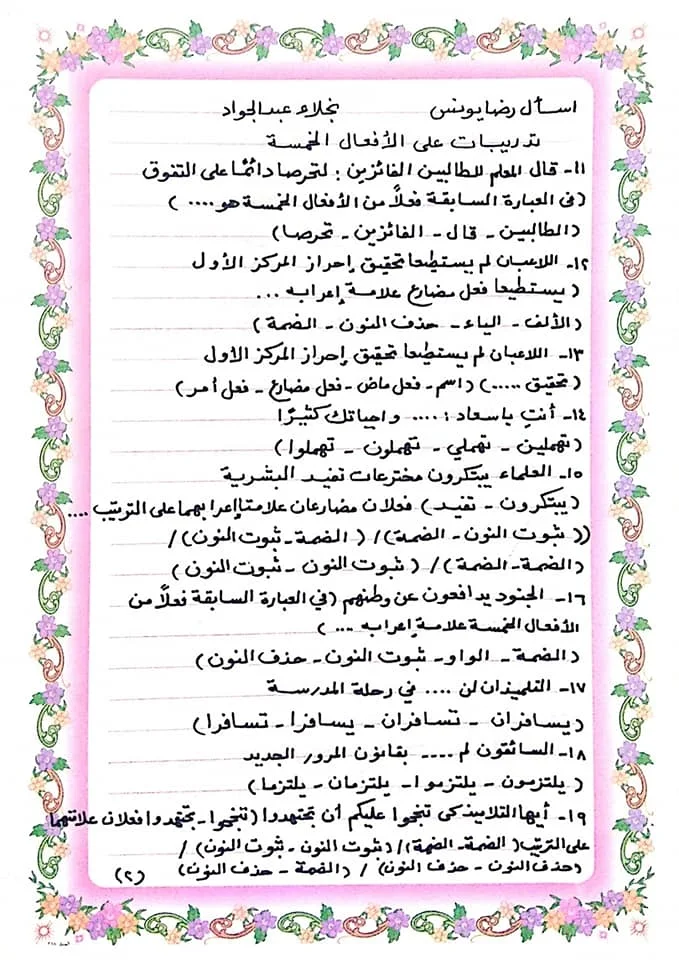 اسأل رضا يونس نجلاء عبد الجواد
تدريبات على الأفعال الخمسة
١١- قال المعلم للطالبين الفائزين : لتحرصا دائمًا على التفوق
(في العبارة السابقة فعلًا من الأفعال الخمسة هو .... )
(الطالبين - قال - الفائزين - تحرصا)
١٢- اللاعبان لم يستطيعا تحقيق إحراز المركز الأول
( يستطيعا فعل مضارع علامة إعرابه ...
(الألف - الياء - حذف النون - الضمة)
١٣- اللاعبان لم يستطيعا تحقيق إحراز المركز الأول
( تحقيق .....) (اسم - فعل ماض - فعل مضارع - فعل أمر)
١٤- أنتِ يا سعاد : .... واجباتك كثيرًا
(تهملين - تهملي - تهملون - تهملوا)
١٥- العلماء يبتكرون مخترعات تفيد البشرية
(يبتكرون - تفيد) فعلان مضارعان علامتا إعرابهما على الترتيب ....
(( ثبوت النون - الضمة) / ( الضمة - ثبوت النون) /
(الضمة - الضمة) / ( ثبوت النون - ثبوت النون)
١٦- الجنود يدافعون عن وطنهم (في العبارة السابقة فعلًا من
الأفعال الخمسة علامة إعرابه ... )
(الضمة - الواو - ثبوت النون - حذف النون)
١٧- التلميذان لن .... في رحلة المدرسة
(يسافران - تسافران - يسافرا - تسافرا)
١٨- السائقون لم .... بقانون المرور الجديد
( يلتزمون - يلتزموا - يلتزمان - يلتزما)
١٩- أيها التلاميذ كى تنجحوا عليكم أن تجتهدوا (تنجحوا - تجتهدوا فعلان علامتهما
على الترتيب ( الضمة - الضمة) / (ثبوت النون - ثبوت النون) /
(حذف النون - حذف النون) / (الضمة - حذف النون)
(٢)